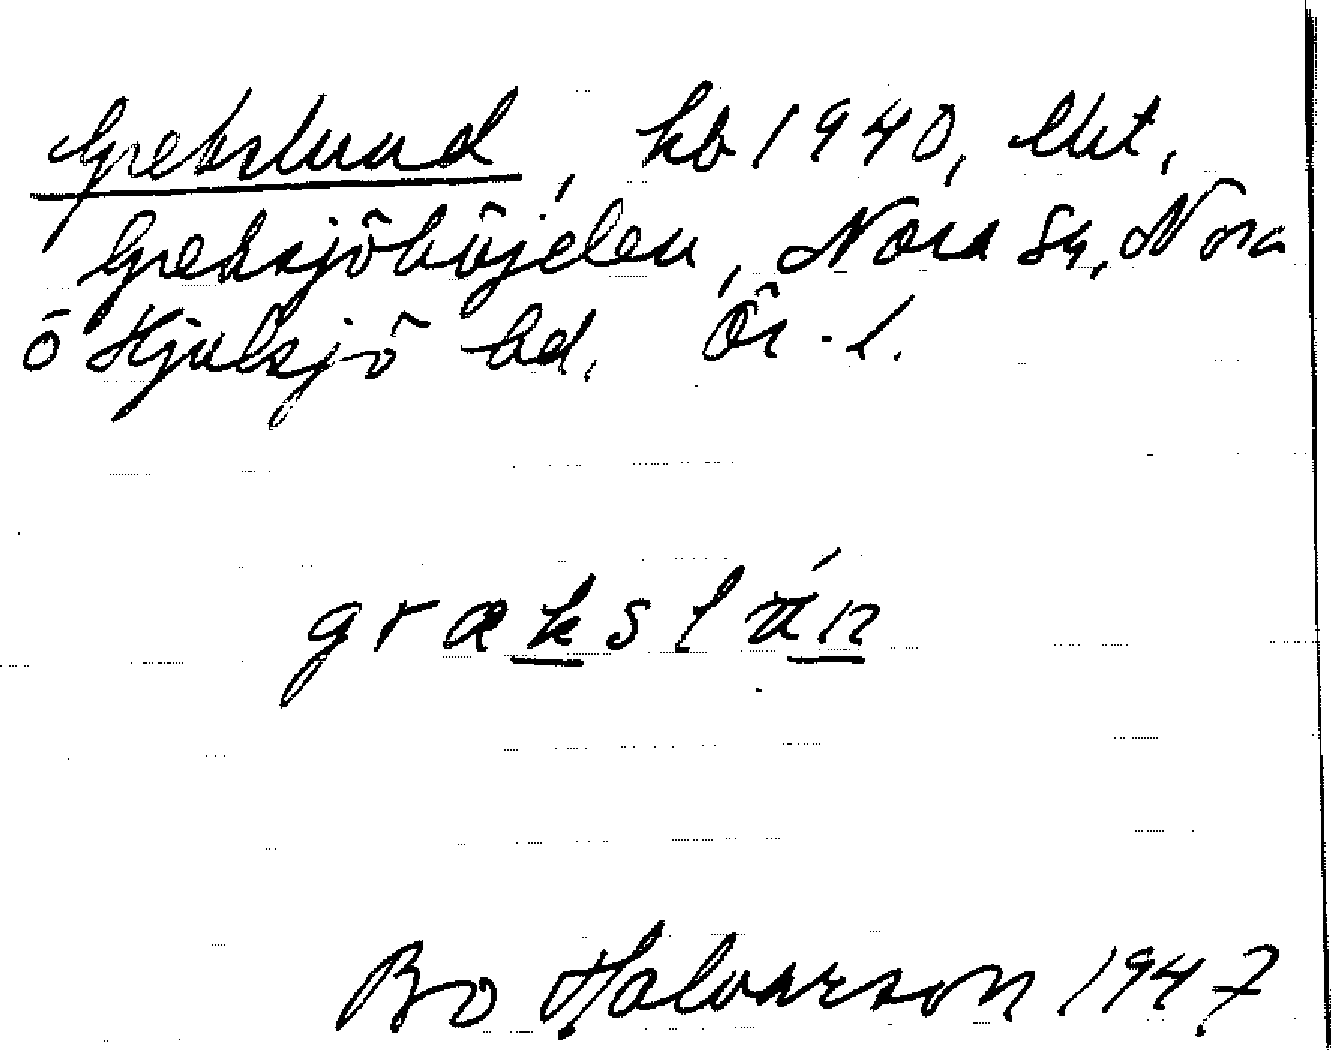 Grekslund, kb 1940, lht,
Greksjöhöjden, Nora sn, Nora
o Hjulsjö bd. Ör. l.
grækslún
Bo Halvarson 1947